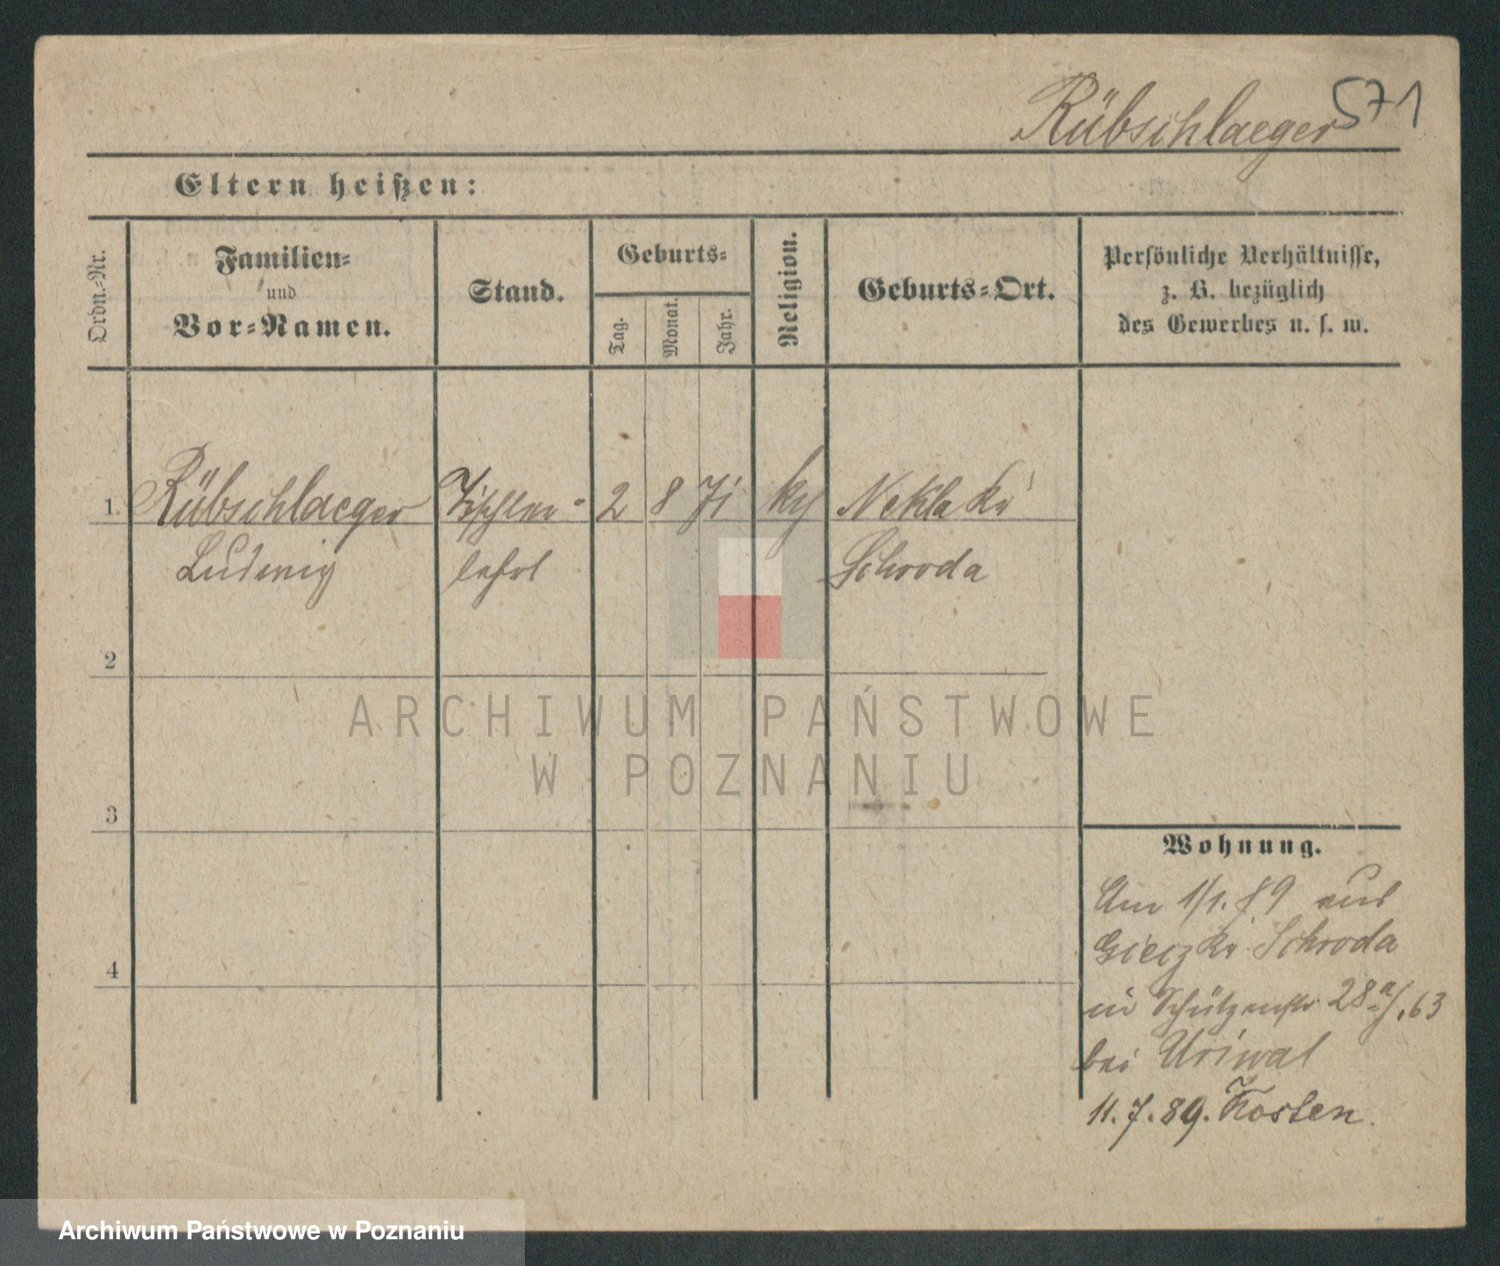 Rübschlaeger 571
Eltern heißen:
Ordn.-Nr.
Familien-
und
Vor-Namen.
Stand.
Geburts-
Tag.
Monat.
Jahr.
Religion.
Geburts-Ort.
Persönliche Verhältnisse,
z. B. bezüglich
des Gewerbes u. s. w.
1. Rübschlaeger Tischler- 2 8 71 Nekla Kr
Ludwig lehrl Schroda
2
3
4
Wohnung.
Am 1/1. 89 aus
Gieczki Schroda
in Schützenstr 28a/f.63
bei Uriwal
11.7.89. Kosten.
ARCHIWUM PAŃSTWOWE
W POZNANIU
Archiwum Państwowe w Poznaniu